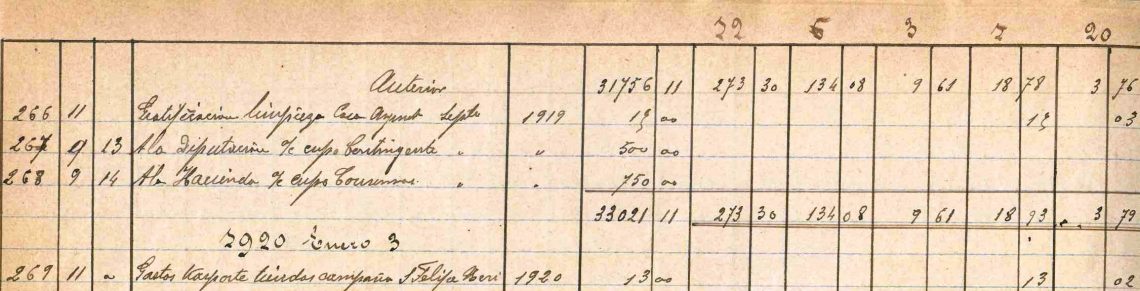 22 6 3 7 20
Anterior 31756 11 273 30 134 08 9 61 18 78 3 76
266 11 Gratificacion limpieza Casa Ayunt Septe 1919 15 00 15 03
267 9 13 A la Diputacion % cupo Contingente " " 500 00
268 9 14 A la Hacienda % cupo Consumos " " 750 00
33021 11 273 30 134 08 9 61 18 93 3 79
1920 Enero 3
269 11 " Gastos trasporte tiendas campaña S Felipe Neri 1920 13 00 13 02